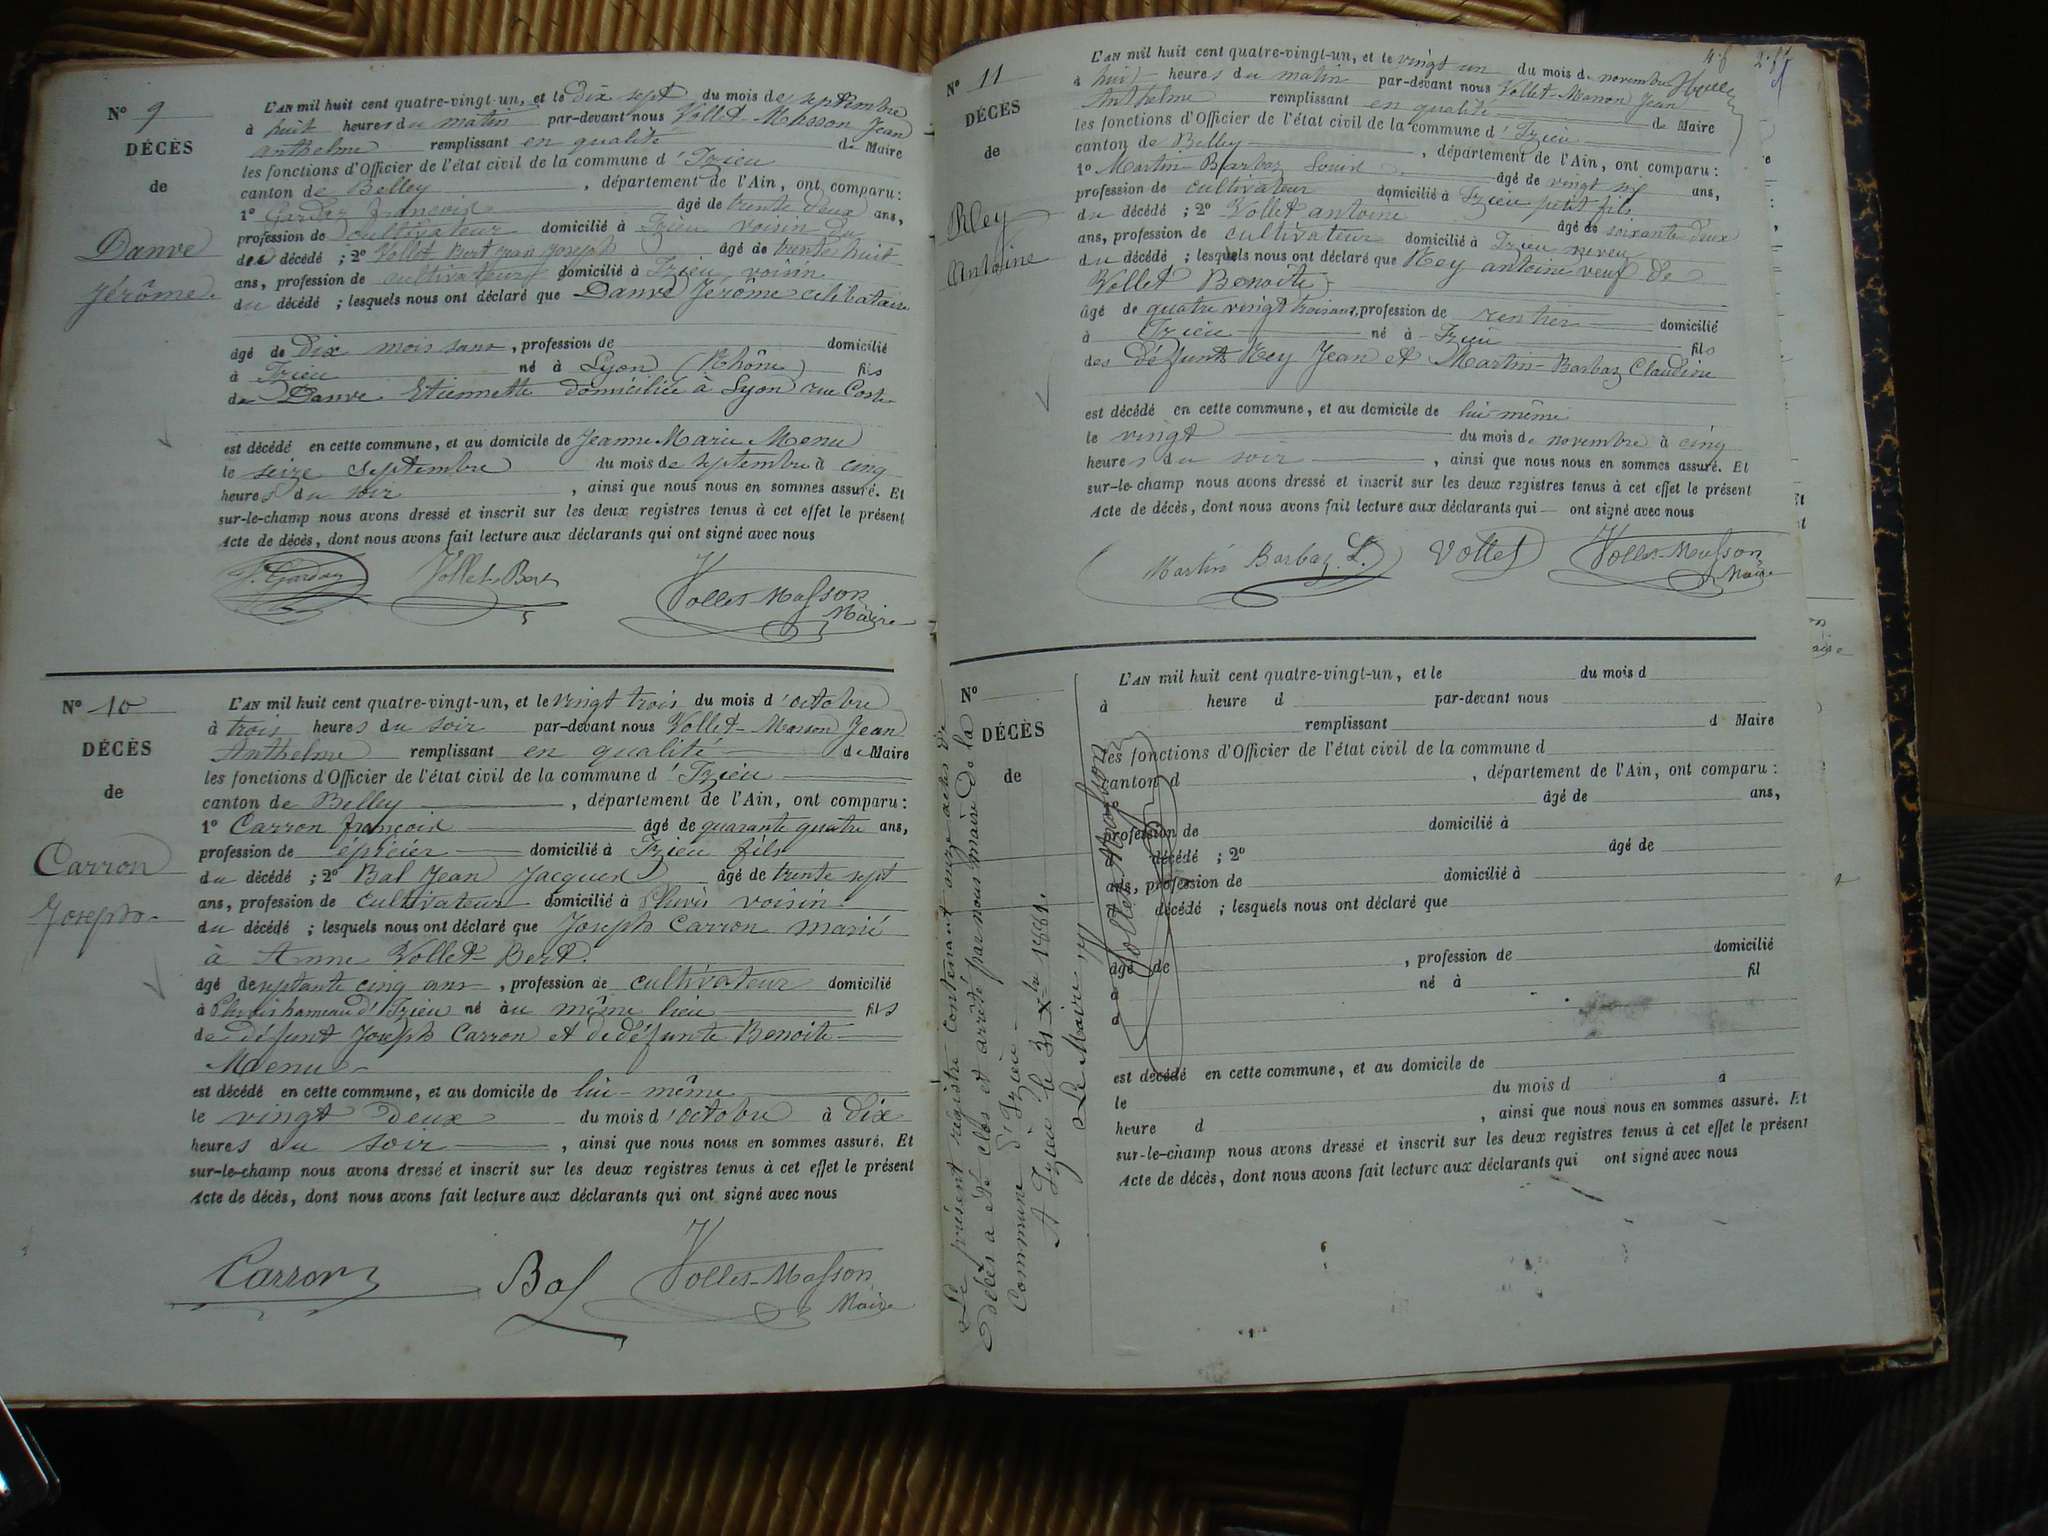 N° 9
DÉCÈS
de
Danve
Jérôme
L'AN mil huit cent quatre-vingt-un, et le dix sept du mois de septembre
à huit heures du matin par-devant nous Vollet-Masson Jean
Anthelme remplissant en qualité de Maire
les fonctions d'Officier de l'état civil de la commune d'Izieu
canton de Belley, département de l'Ain, ont comparu :
1° Gardaz françois âgé de trente deux ans,
profession de cultivateur domicilié à Izieu voisin du
décédé ; 2° Vollet Bert Jean Joseph âgé de trente huit
ans, profession de cultivateur domicilié à Izieu, voisin
du décédé ; lesquels nous ont déclaré que Danve Jérôme célibataire
âgé de dix mois sans, profession de domicilié
à Izieu né à Lyon (Rhône) fils
de Danve Etiennette domiciliée à Lyon rue Coste
est décédé en cette commune, et au domicile de Jeanne Marie Menu
le seize septembre du mois de septembre à cinq
heures du soir, ainsi que nous nous en sommes assuré. Et
sur-le-champ nous avons dressé et inscrit sur les deux registres tenus à cet effet le présent
Acte de décès, dont nous avons fait lecture aux déclarants qui ont signé avec nous
Vollet Bert Vollet-Masson
Maire
N° 10
DÉCÈS
de
Carron
Joseph
L'AN mil huit cent quatre-vingt-un, et le vingt trois du mois d'octobre
à trois heures du soir par-devant nous Vollet-Masson Jean
Anthelme remplissant en qualité de Maire
les fonctions d'Officier de l'état civil de la commune d'Izieu
canton de Belley, département de l'Ain, ont comparu :
1° Carron françois âgé de quarante quatre ans,
profession de épicier domicilié à Izieu fils
du décédé ; 2° Bal Jean Jacques âgé de trente sept
ans, profession de cultivateur domicilié à voisin
du décédé ; lesquels nous ont déclaré que Joseph Carron marié
à Anne Vollet-Bert
âgé de septante cinq ans, profession de cultivateur domicilié
à hameau d'Izieu né au même lieu fils
de défunt Joseph Carron et de défunte Benoite
Menu
est décédé en cette commune, et au domicile de lui-même
le vingt deux du mois d'octobre à dix
heures du soir, ainsi que nous nous en sommes assuré. Et
sur-le-champ nous avons dressé et inscrit sur les deux registres tenus à cet effet le présent
Acte de décès, dont nous avons fait lecture aux déclarants qui ont signé avec nous
Carron Bal Vollet-Masson
Maire
N° 11
DÉCÈS
de
Rey
Antoine
L'AN mil huit cent quatre-vingt-un, et le vingt un du mois de novembre
à huit heures du matin par-devant nous Vollet-Masson Jean
Anthelme remplissant en qualité de Maire
les fonctions d'Officier de l'état civil de la commune d'Izieu
canton de Belley, département de l'Ain, ont comparu :
1° Martin Barbaz Louis âgé de vingt six ans,
profession de cultivateur domicilié à Izieu petit fils
du décédé ; 2° Vollet antoine âgé de soixante deux
ans, profession de cultivateur domicilié à Izieu neveu
du décédé ; lesquels nous ont déclaré que Rey antoine veuf de
Vollet Benoite
âgé de quatre vingt trois ans, profession de rentier domicilié
à Izieu né à Izieu fils
des défunts Rey Jean et Martin-Barbaz Claudine
est décédé en cette commune, et au domicile de lui même
le vingt du mois de novembre à cinq
heures du soir, ainsi que nous nous en sommes assuré. Et
sur-le-champ nous avons dressé et inscrit sur les deux registres tenus à cet effet le présent
Acte de décès, dont nous avons fait lecture aux déclarants qui ont signé avec nous
Martin Barbaz L. Vollet Vollet-Masson
Maire
N°
DÉCÈS
de
L'AN mil huit cent quatre-vingt-un, et le du mois d
à heure d par-devant nous
remplissant d Maire
les fonctions d'Officier de l'état civil de la commune d
canton d, département de l'Ain, ont comparu :
âgé de ans,
profession de domicilié à
décédé ; 2° âgé de
ans, profession de domicilié à
décédé ; lesquels nous ont déclaré que
âgé de, profession de domicilié
à né à fil
d
est décédé en cette commune, et au domicile de
le du mois d à
heure d, ainsi que nous nous en sommes assuré. Et
sur-le-champ nous avons dressé et inscrit sur les deux registres tenus à cet effet le présent
Acte de décès, dont nous avons fait lecture aux déclarants qui ont signé avec nous
Le présent registre contenant onze actes de
décès a été clos et arrêté par nous maire de la
Commune d'Izieu
A Izieu le 31 Xbre 1881.
Le Maire
Vollet-Masson